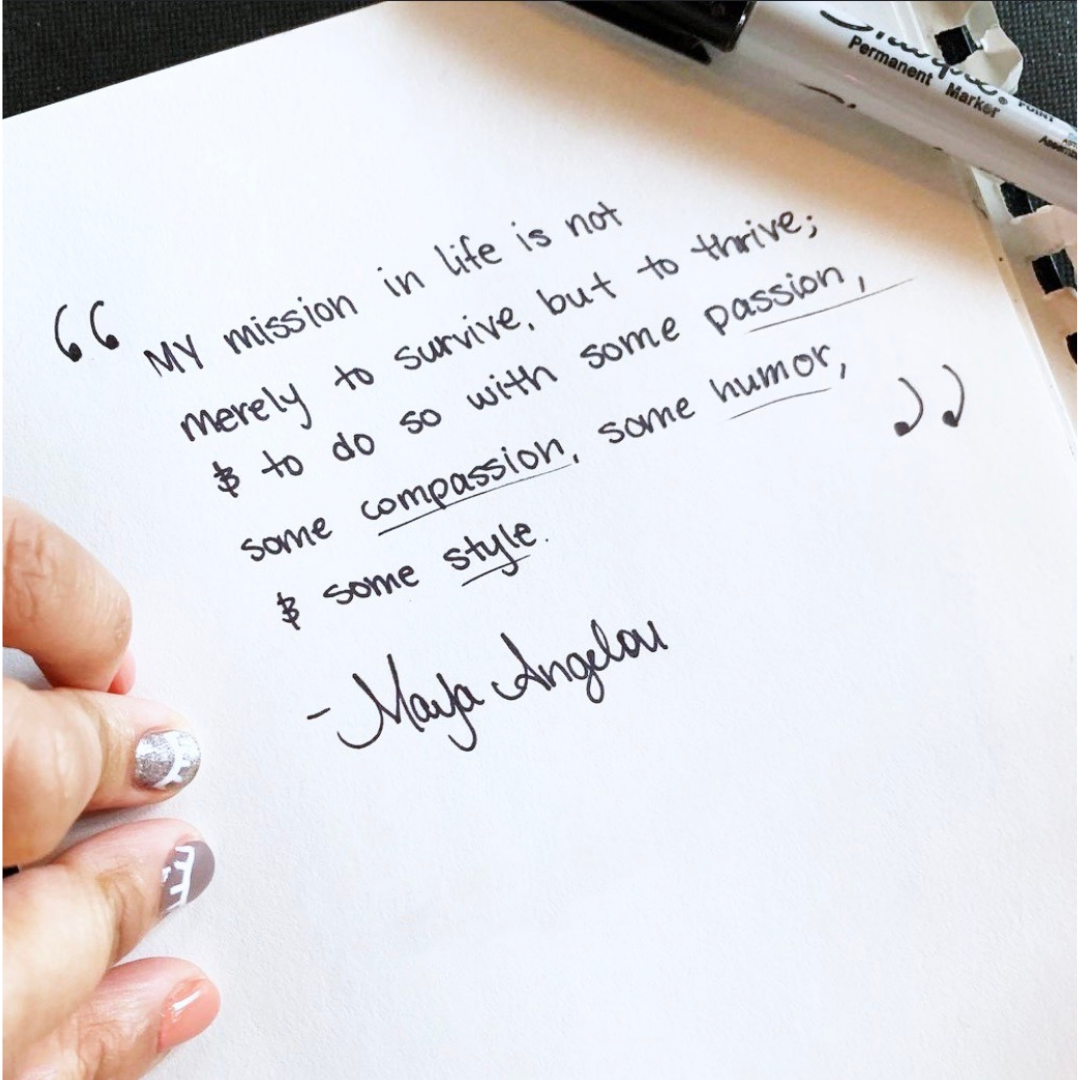 Sharpie®
Permanent Marker
POINT
“ MY mission in life is not
merely to survive, but to thrive;
& to do so with some passion,
some compassion, some humor,
& some style. ”
- Maya Angelou